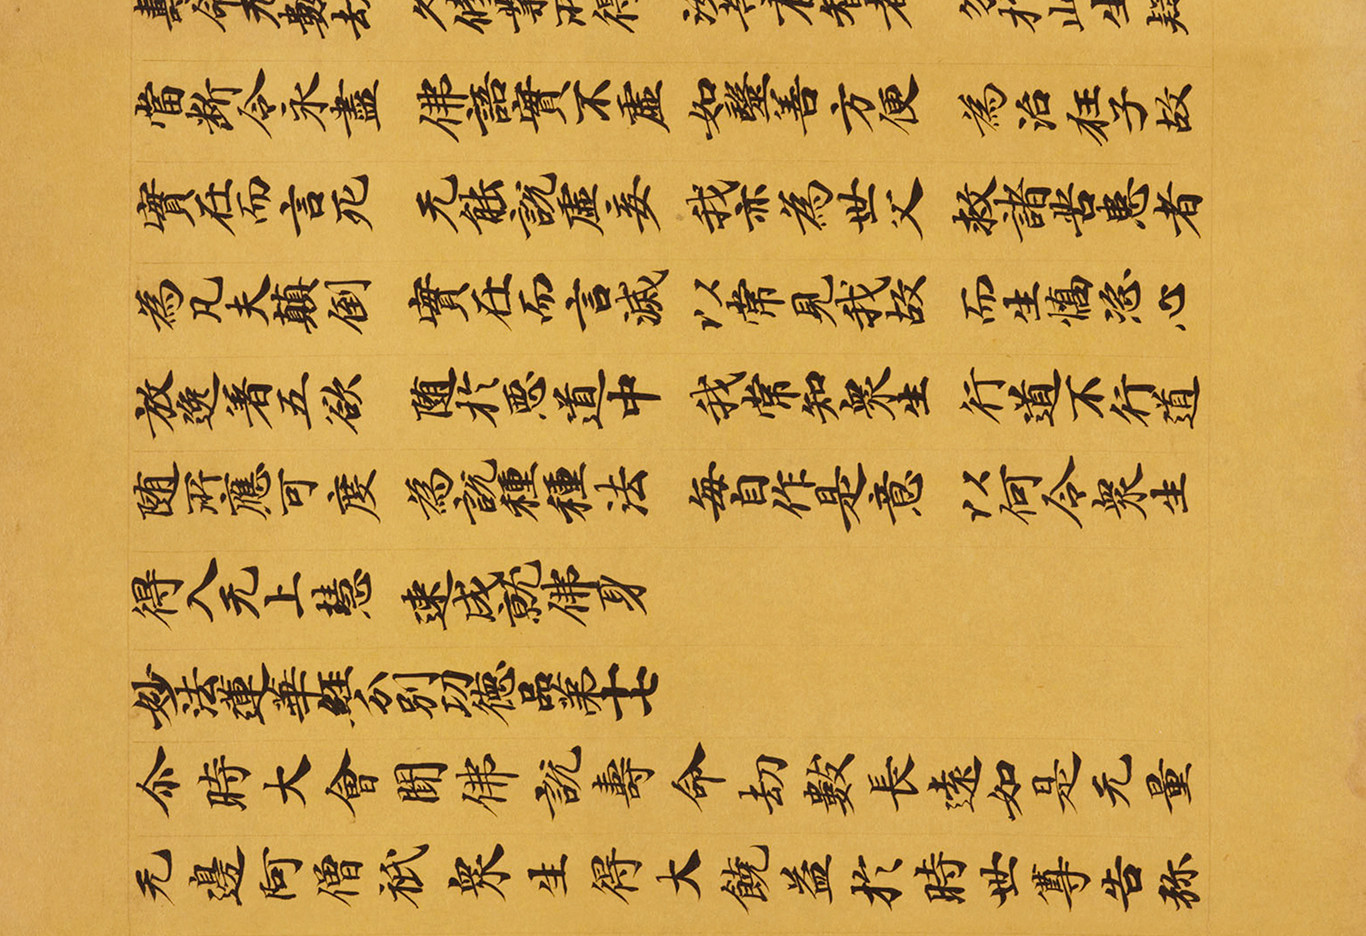 壽命无數劫　久修業所得　汝等有智者　勿於此生疑
當断令永盡　佛語實不虛　如醫善方便　為治狂子故
實在而言死　无能說虛妄　我亦為世父　救諸苦患者
為凡夫顛倒　實在而言滅　以常見我故　而生憍恣心
放逸著五欲　堕於惡道中　我常知衆生　行道不行道
随所應可度　為說種種法　每自作是意　以何令衆生
得入无上慧　速成就佛身
妙法蓮華經分別功德品第十七
尒時大會聞佛說壽命劫數長遠如是无量
无邊阿僧祇衆生得大饒益於時世尊告弥